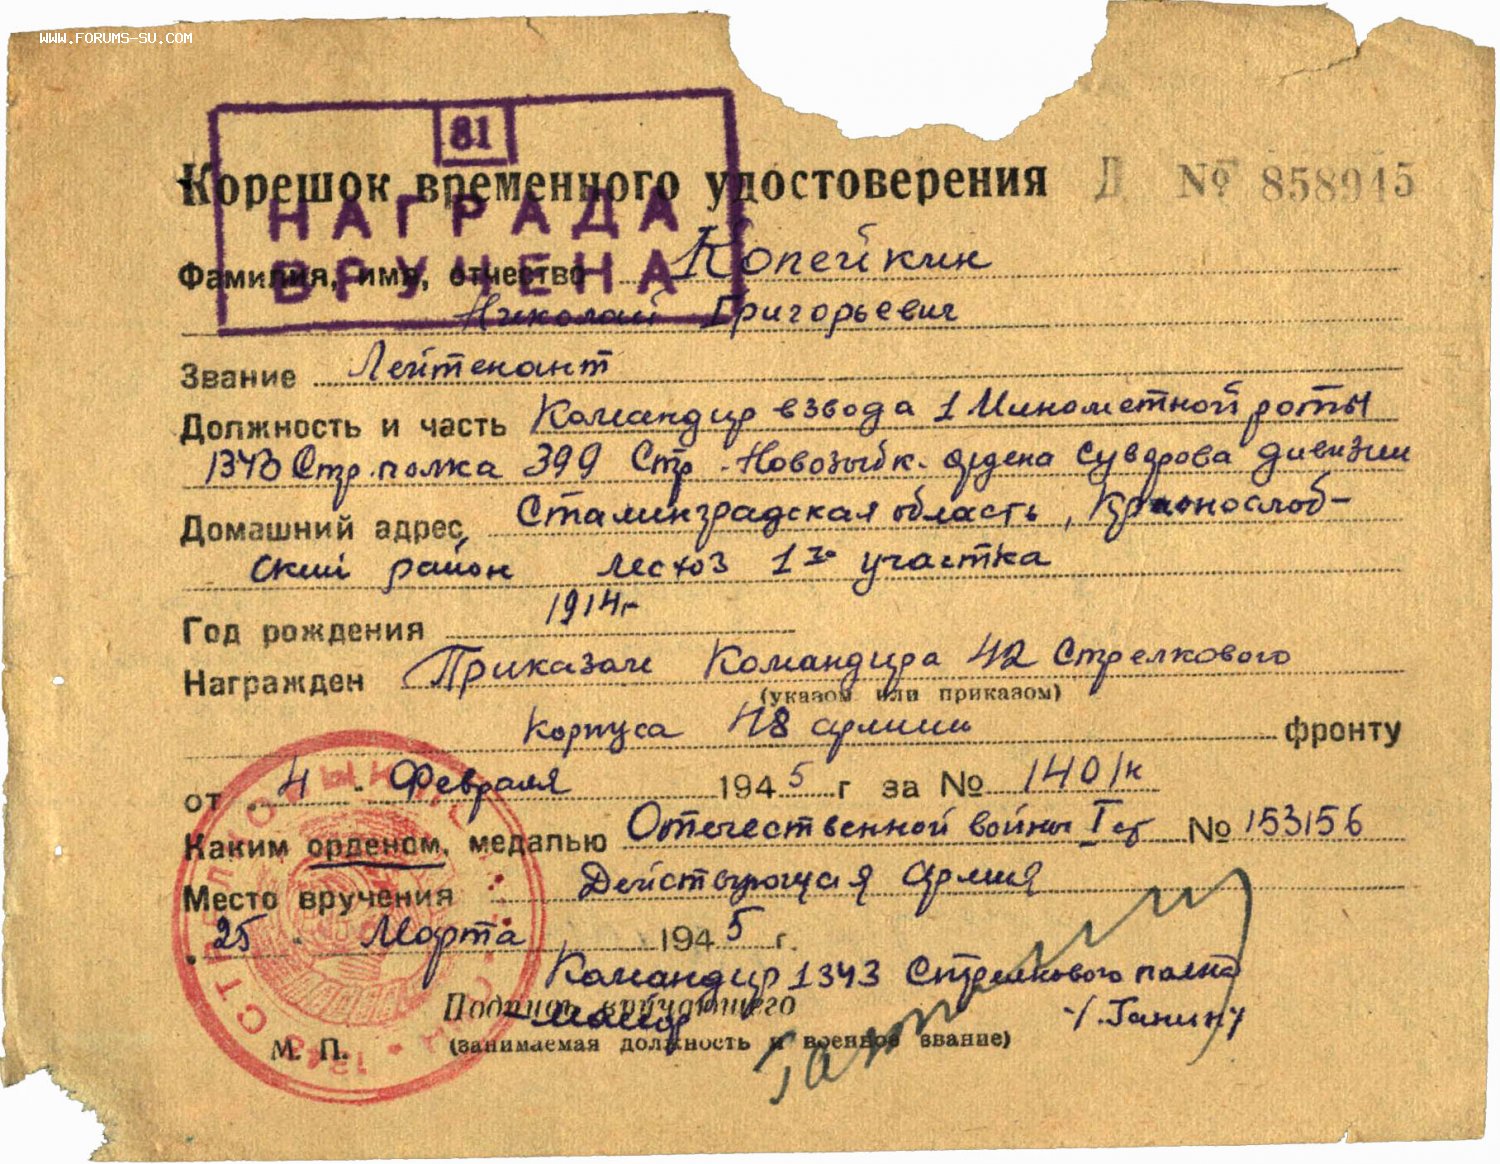 WWW.FORUMS-SU.COM
81
НАГРАДА
ВРУЧЕНА
Корешок временного удостоверения Д № 858915
Фамилия, имя, отчество Копейкин
Николай Григорьевич
Звание Лейтенант
Должность и часть Командир взвода 1 Минометной роты
1343 Стр. полка 399 Стр. Новозыбк. ордена Суворова дивизии
Домашний адрес Сталинградская область, Краснослоб-
ский район лесхоз 1го участка
Год рождения 1914г
Награжден Приказом Командира 42 Стрелкового
(указом или приказом)
Корпуса 48 армии фронту
от 4 Февраля 1945 г за № 140/к
Каким орденом, медалью Отечественной войны I ст № 153156
Место вручения Действующая Армия
25 Марта 1945 г.
Командир 1343 Стрелкового полка
Подпись вручающего
Майор
(занимаемая должность и военное звание)
М. П.